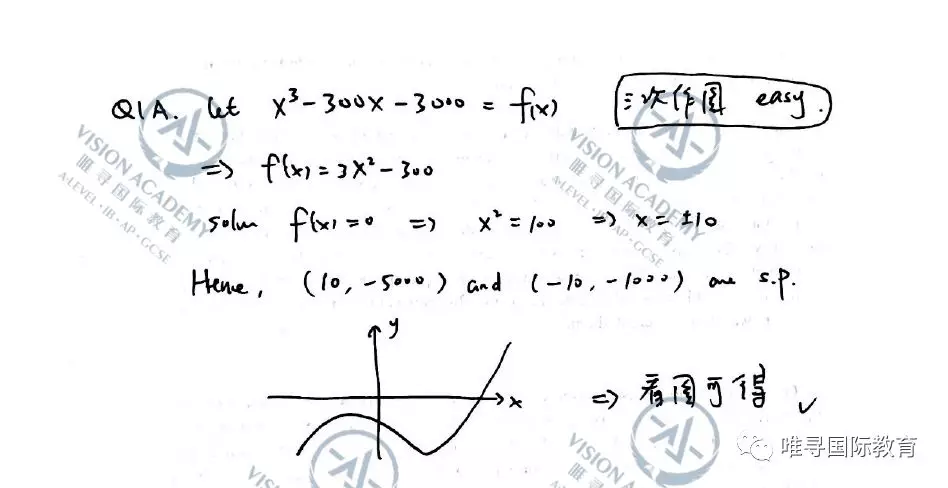 Q1A. let x³-300x-3000 = f(x) 三次作图 easy.
=> f'(x) = 3x²-300
solve f'(x)=0 => x²=100 => x=±10
Hence, (10, -5000) and (-10, -1000) are s.p.
y
x
=> 看图可得 ✓
VISION ACADEMY
唯寻国际教育
A-LEVEL·IB·AP·GCSE
VISION ACADEMY
唯寻国际教育
A-LEVEL·IB·AP·GCSE
唯寻国际教育